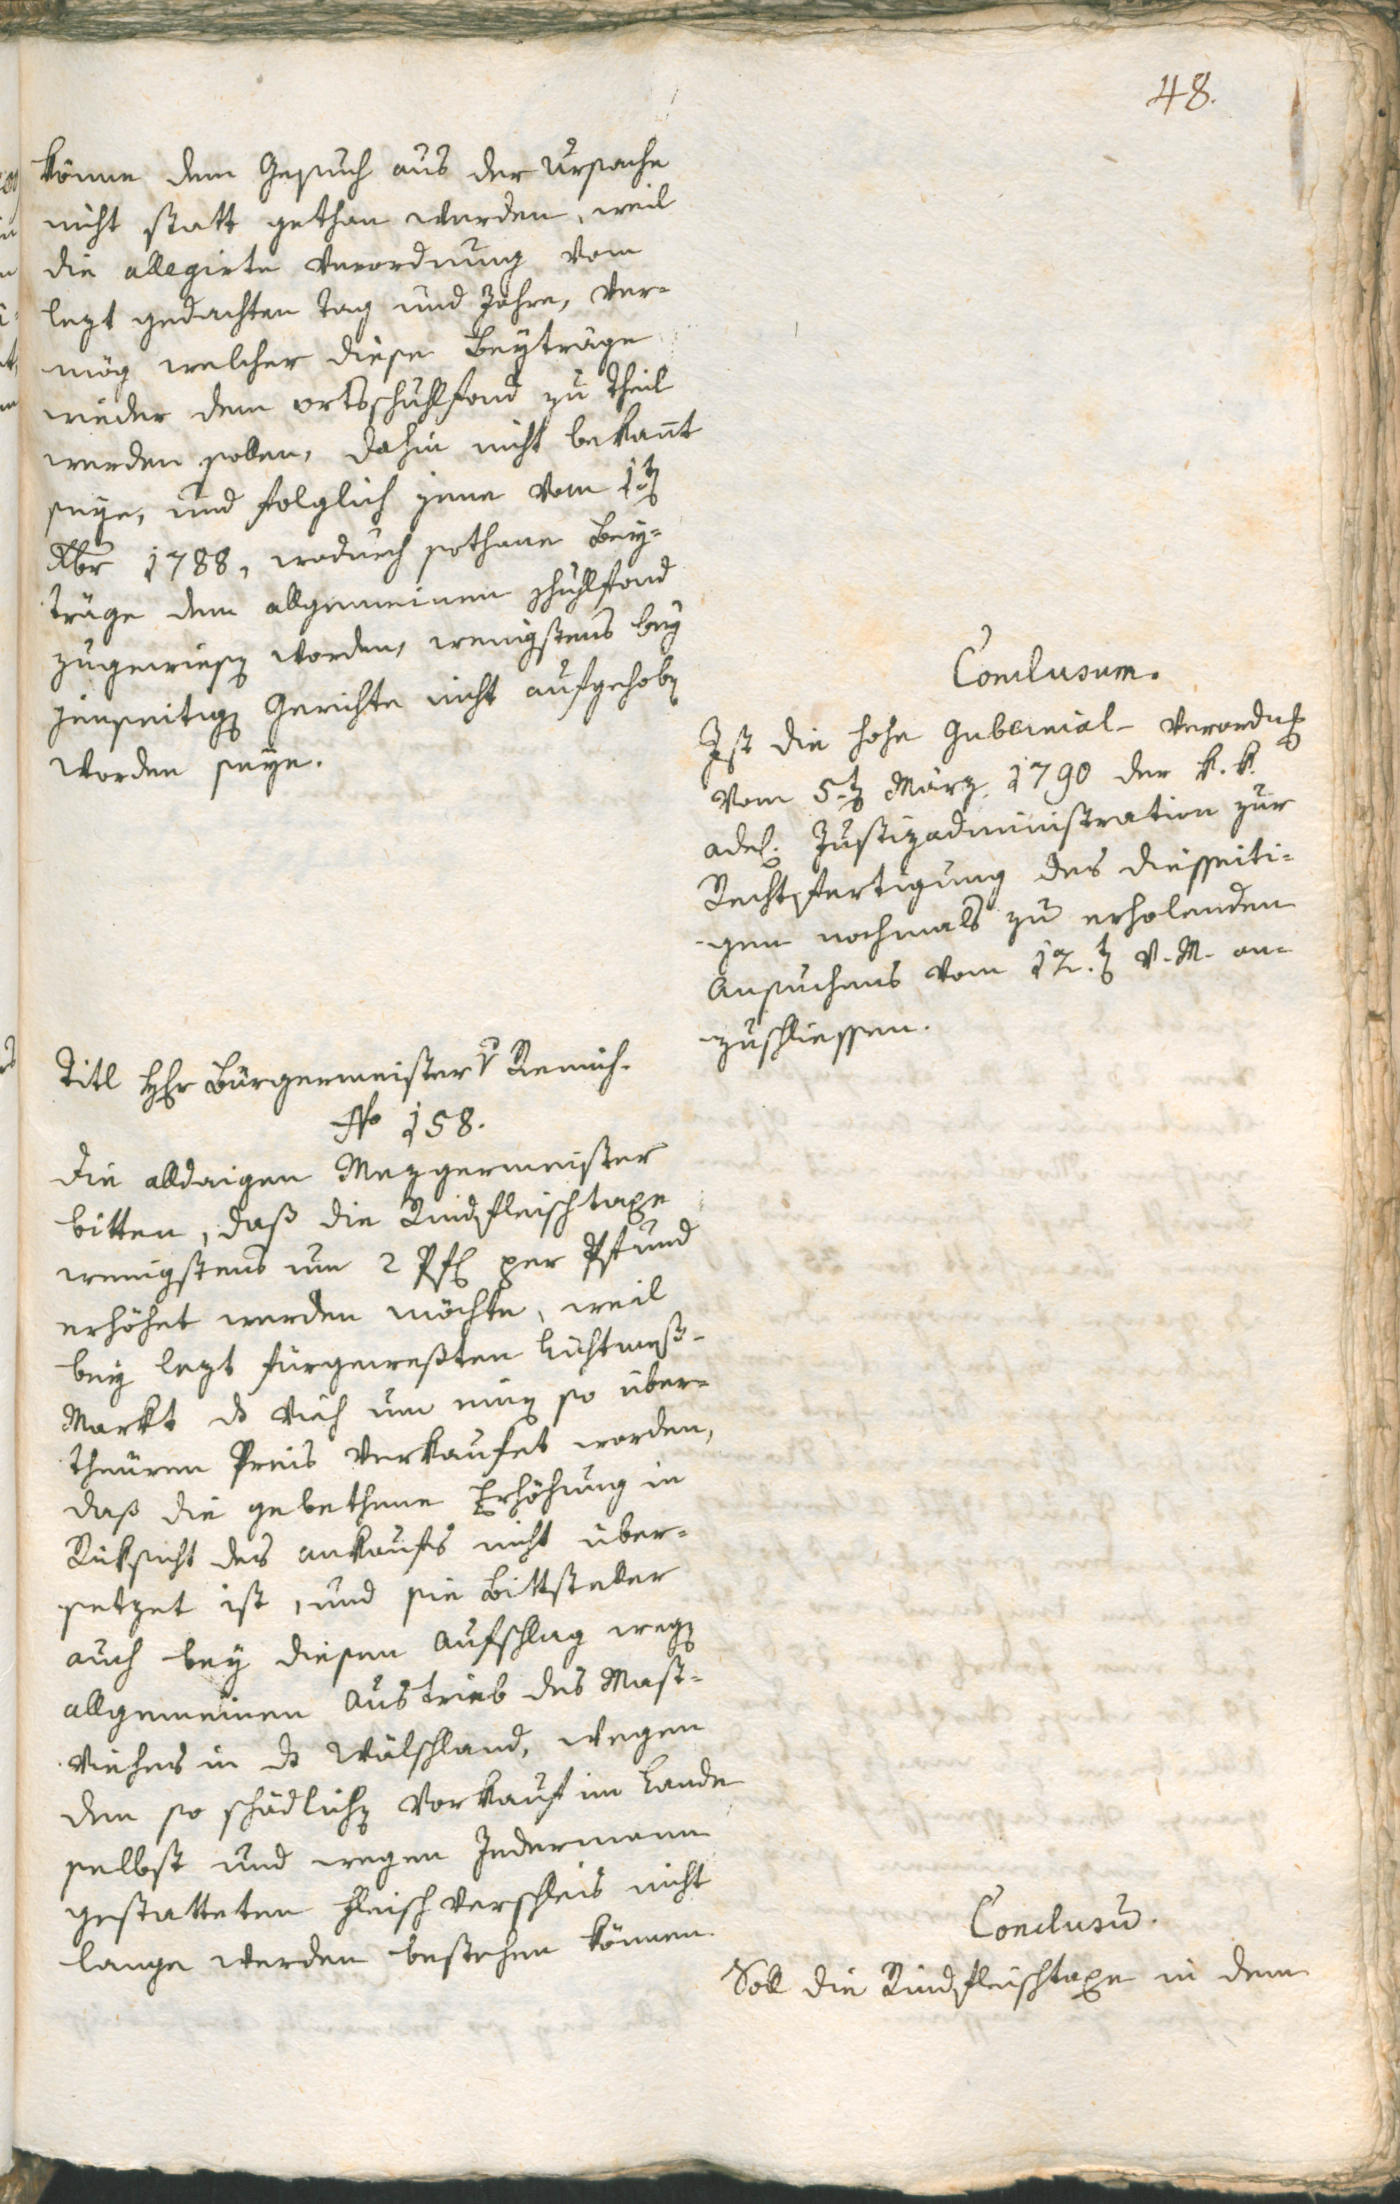 48.
könne dem Gesuch aus der Ursache
nicht statt gethan werden, weil
die allegirte Verordnung vom
lezt gedachten Tag und Jahre, ver-
mög welcher diese Beyträge
wieder dem ortsschuhlfond zu theil
werden sollen, dahin nicht bekañt
seye, und folglich jene vom 1t
Xbr 1788, wodurch sothane Bey-
träge dem allgemeinen schuhlfond
zugewiesen worden, wenigstens bey
jenseitigen Gerichte nicht aufgehoben
worden seye.
Conclusum.
Ist die hohe Gubernial- Verordng
vom 5.t März 1790 der k. k.
adel. Justizadministration zur
Rechtsfertigung des diesseiti-
gen nochmals zu erholenden
Ansuchens vom 12.t v. M. an-
zuschliessen.
Titl Hr Bürgermeister v Remich.
No 158.
Die alldaigen Mezgermeister
bitten, daß die Rindfleischtaxe
wenigstens um 2 Pf per Pfund
erhöhet werden möchte, weil
bey lezt fürgewesten Lichtmeß-
Markt ds Vieh um einen so über-
theuren Preis verkaufet worden,
daß die gebethene Erhöhung in
Rüksicht des ankaufs nicht über-
setzet ist, und sie Bittsteller
auch bey diesem Aufschlag wegen
allgemeinen Austrieb des Mast-
viehes in ds Wälschland, wegen
dem so schädlichen Vorkauf im Lande
selbst und wegen Jedermann
gestatteten Fleisch Verschleis nicht
lange werden bestehen können.
Conclusũ.
Soll die Rindfleischtaxe in dem